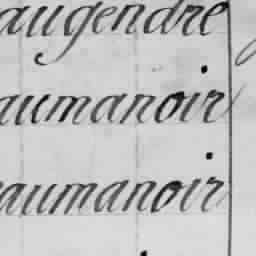 augendre
aumanoir
aumanoir